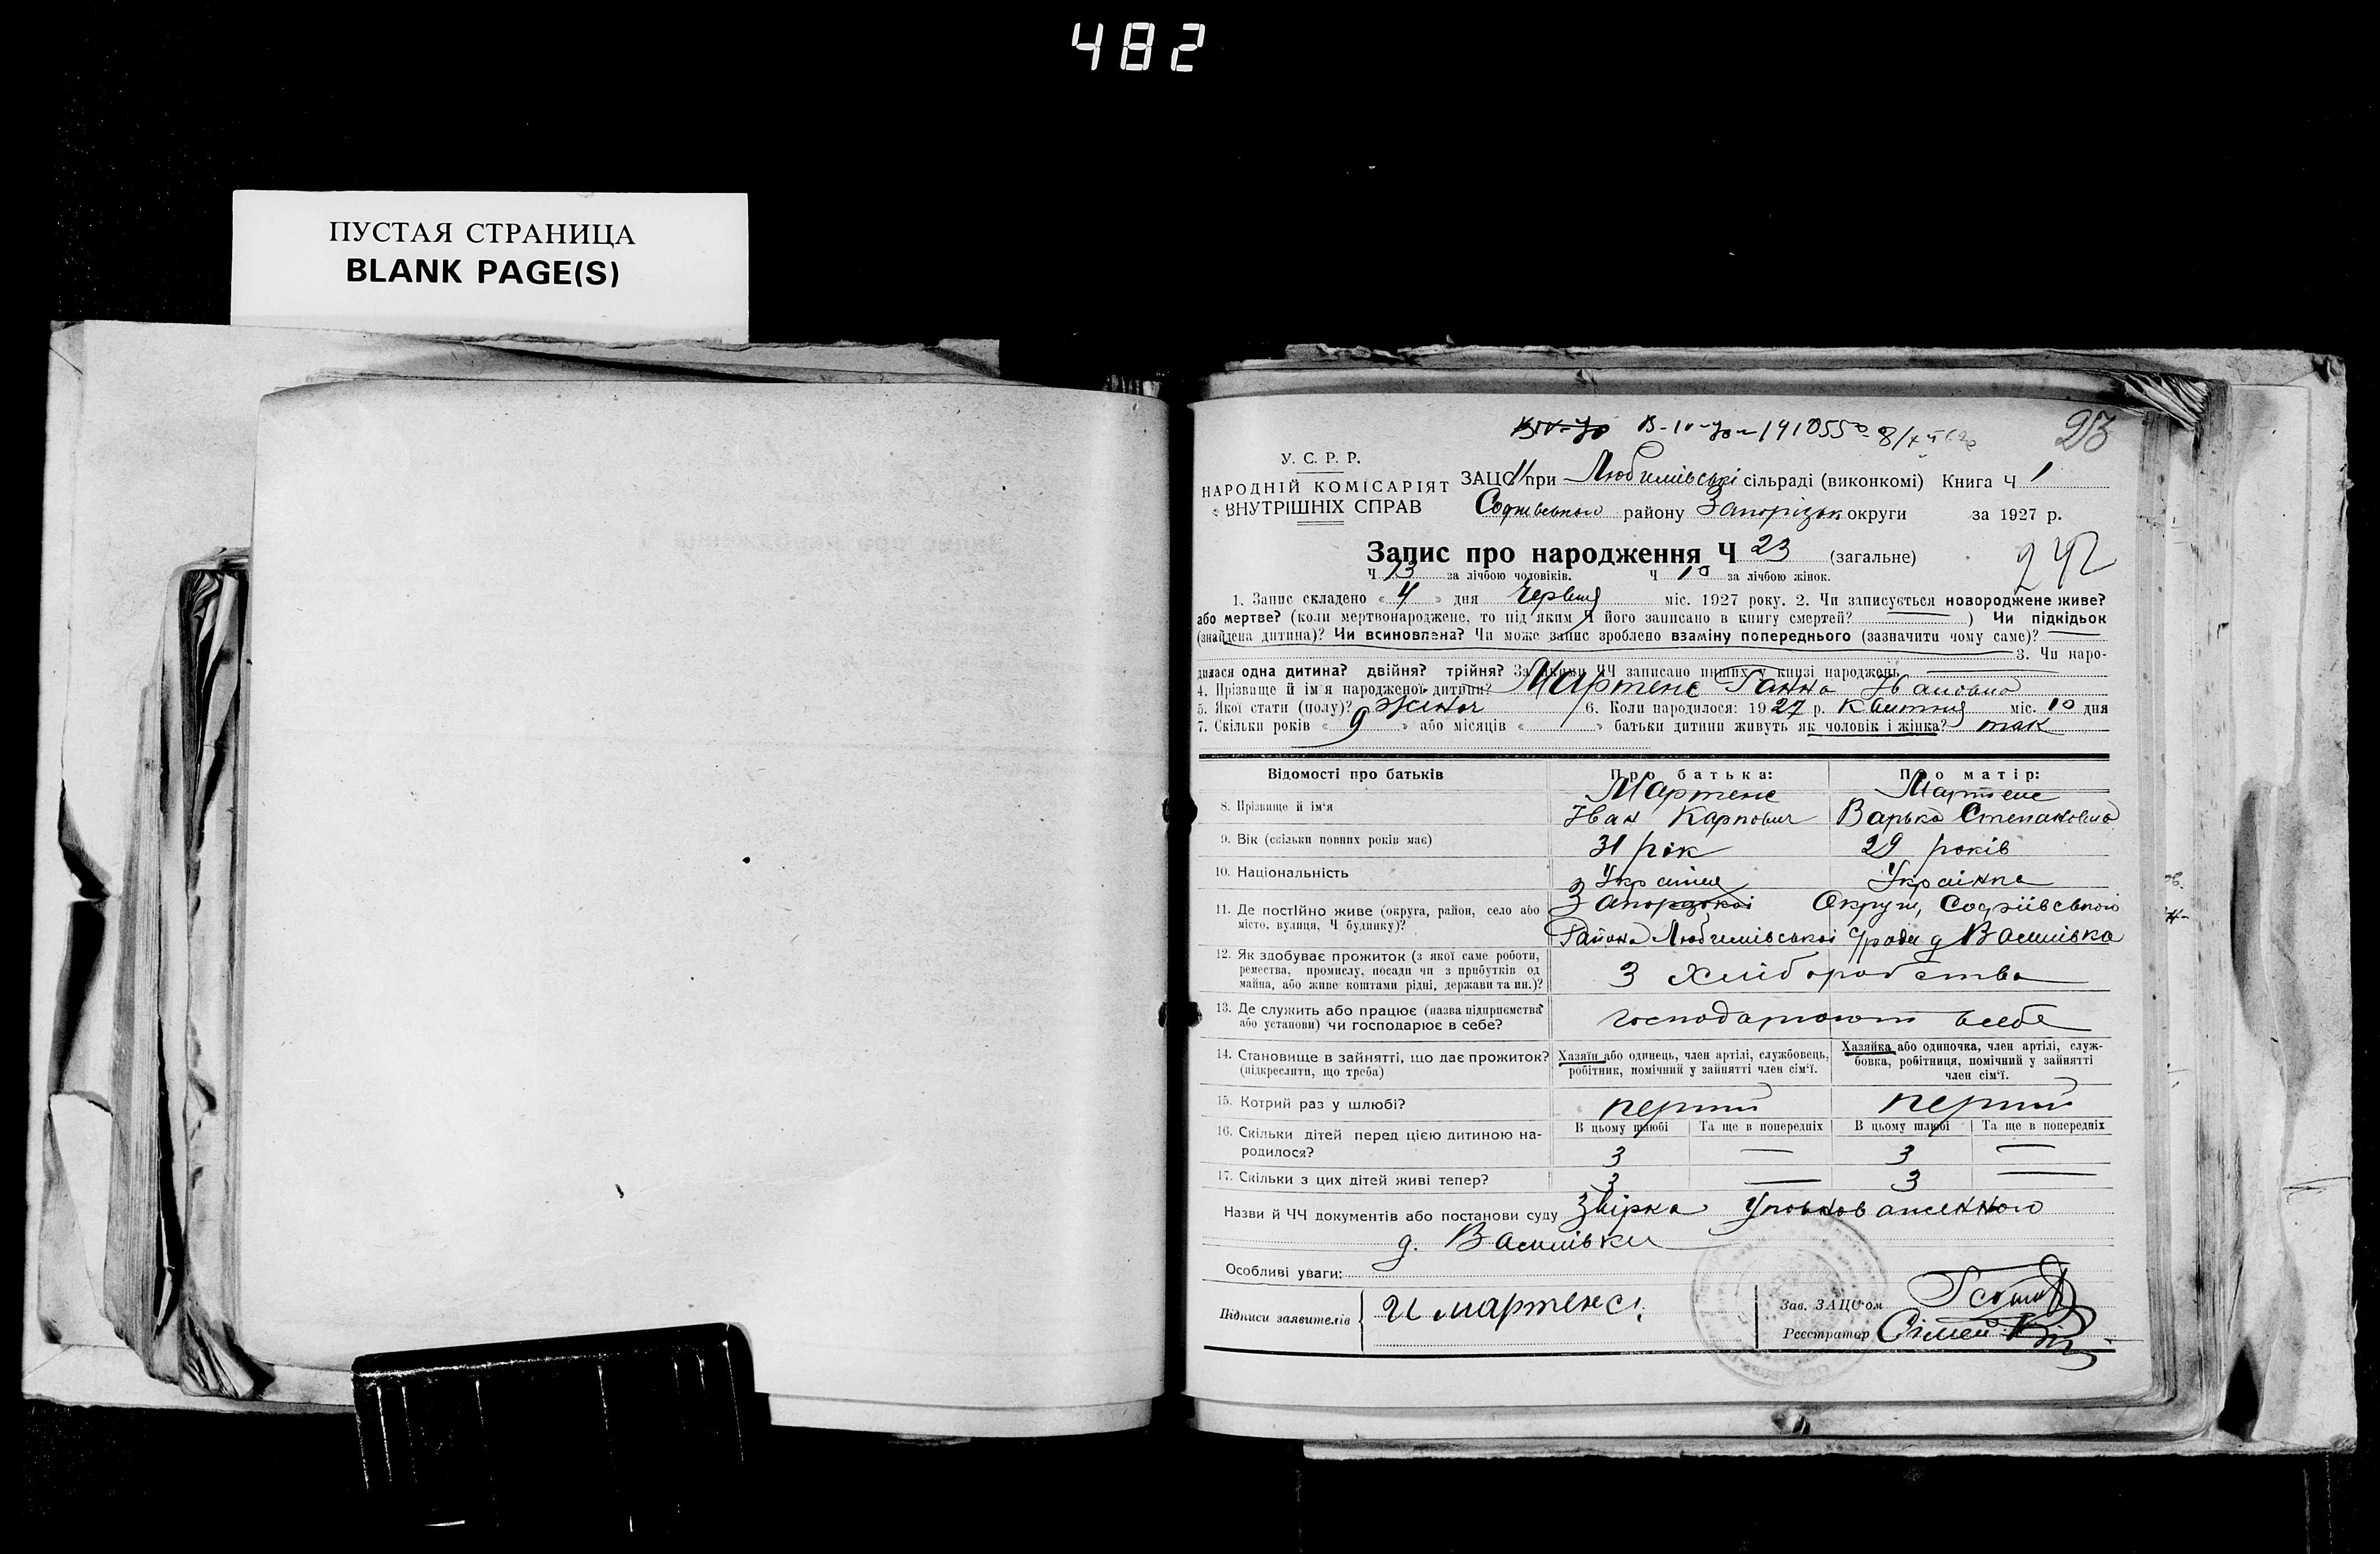 482
ПУСТАЯ СТРАНИЦА
BLANK PAGE(S)
23
У. С. Р. Р.
НАРОДНІЙ КОМІСАРІЯТ
ВНУТРІШНІХ СПРАВ
ЗАЦС при Любимівські сільраді (виконкомі) Книга Ч 1
Софиївського району Запорізьк округи за 1927 р.
Запис про народження Ч 23 (загальне)
242
Ч 13 за лічбою чоловіків. Ч 10 за лічбою жінок.
1. Запис складено « 4 » дня Червня міс. 1927 року. 2. Чи записується новороджене живе?
або мертве? (коли мертвонароджене, то під яким Ч його записано в книгу смертей? ) Чи підкідьок
(знайдена дитина)? Чи всиновлена? Чи може запис зроблено взаміну попереднього (зазначити чому саме)?
3. Чи наро-
дилася одна дитина? двійня? трійня? За якими ЧЧ записано инших у книзі народжень
4. Прізвище й ім'я народженої дитини? Мартенс Ганна Ивановна
5. Якої стати (полу)? жіноч 6. Коли народилося: 1927 р. Квитня міс. 10 дня
7. Скільки років « 9 » або місяців « » батьки дитини живуть як чоловік і жінка? так
Відомості про батьків Про батька: Про матір:
Мартенс Мартенс
8. Прізвище й ім'я Иван Карпович Варька Степановна
9. Вік (скільки повних років має) 31 рік 29 років
10. Національність Українец Українка
11. Де постійно живе (округа, район, село або місто, вулиця, Ч будинку)? Запорізької Округи, Софіївського
Района Любимівської с/ради д Василівка
12. Як здобуває прожиток (з якої саме роботи, ремества, промислу, посади чи з прибутків од майна, або живе коштами рідні, держави та ин.)? З хліборобства
13. Де служить або працює (назва підприємства або установи) чи господарює в себе? господарюют в себе
14. Становище в зайнятті, що дає прожиток? (підкреслити, що треба)
Хазяїн або одинець, член артілі, службовець, робітник, помічний у зайнятті член сім'ї.
Хазяйка або одиночка, член артілі, служ-
бовка, робітниця, помічний у зайнятті
член сім'ї.
15. Котрий раз у шлюбі? перший перший
16. Скільки дітей перед цією дитиною на-
родилося?
В цьому шлюбі Та ще в попередніх В цьому шлюбі Та ще в попередніх
3 — 3 —
17. Скільки з цих дітей живі тепер? 3 — 3 —
Назви й ЧЧ документів або постанови суду Звірка Уповноваженного
д. Василівки
Особливі уваги:
Підписи заявителів И мартенс
Зав. ЗАЦС'ом
Реєстратор